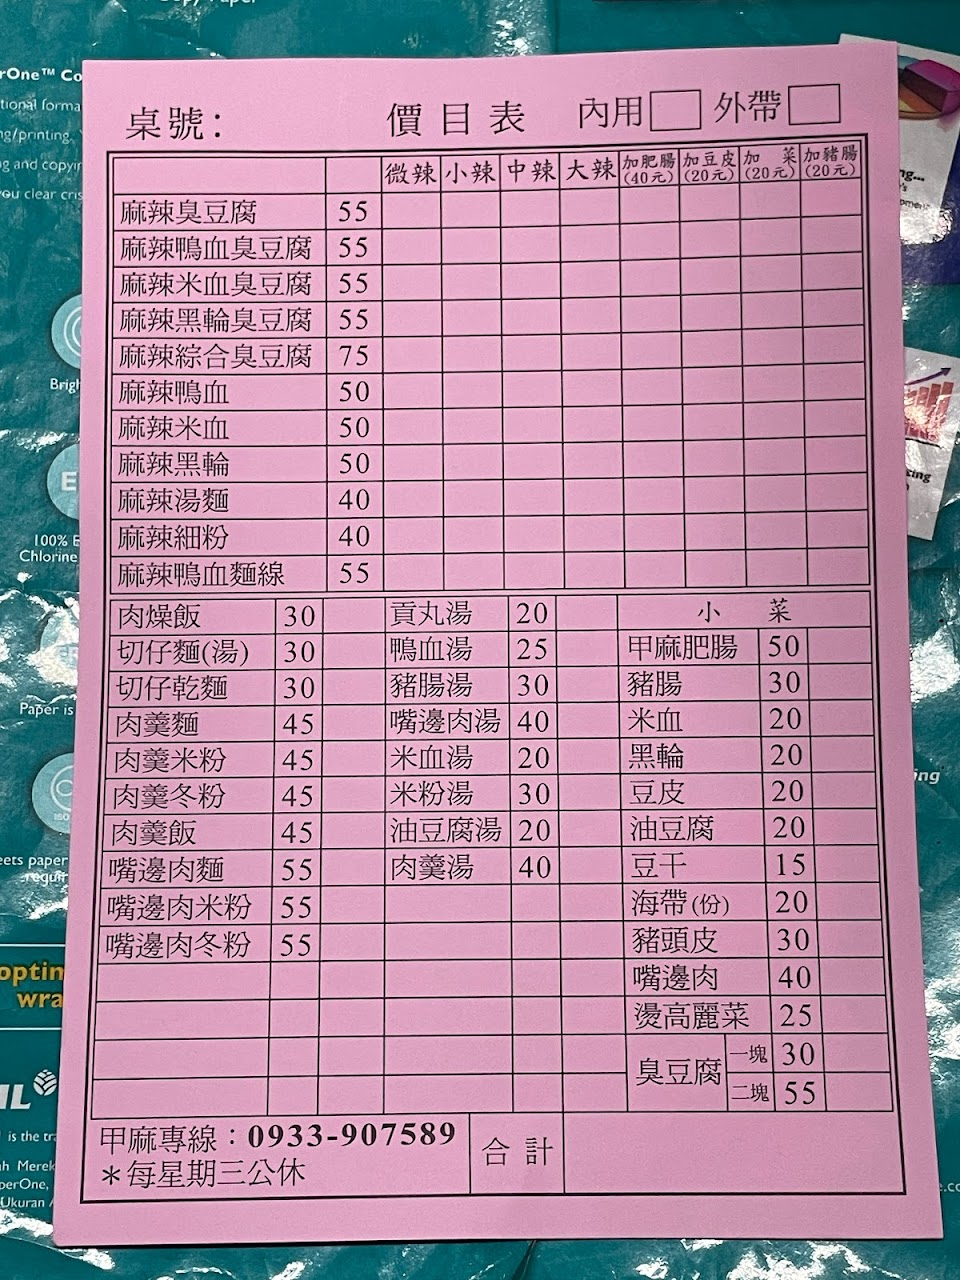 Copy Paper
rOne™ Co
tional forma
ng/printing,
g and copyin
ou clear cris
Brigh
100% E
Chlorine
Paper is
eets paper
requir
optin
wra
is the tra
ah Merek
perOne,
Ukuran
桌號： 價目表 內用 外帶
微辣 小辣 中辣 大辣 加肥腸(40元) 加豆皮(20元) 加菜(20元) 加豬腸(20元)
麻辣臭豆腐 55
麻辣鴨血臭豆腐 55
麻辣米血臭豆腐 55
麻辣黑輪臭豆腐 55
麻辣綜合臭豆腐 75
麻辣鴨血 50
麻辣米血 50
麻辣黑輪 50
麻辣湯麵 40
麻辣細粉 40
麻辣鴨血麵線 55
肉燥飯 30 貢丸湯 20 小菜
切仔麵(湯) 30 鴨血湯 25 甲麻肥腸 50
切仔乾麵 30 豬腸湯 30 豬腸 30
肉羹麵 45 嘴邊肉湯 40 米血 20
肉羹米粉 45 米血湯 20 黑輪 20
肉羹冬粉 45 米粉湯 30 豆皮 20
肉羹飯 45 油豆腐湯 20 油豆腐 20
嘴邊肉麵 55 肉羹湯 40 豆干 15
嘴邊肉米粉 55 海帶(份) 20
嘴邊肉冬粉 55 豬頭皮 30
嘴邊肉 40
燙高麗菜 25
臭豆腐 一塊 30
二塊 55
甲麻專線：0933-907589 合計
＊每星期三公休